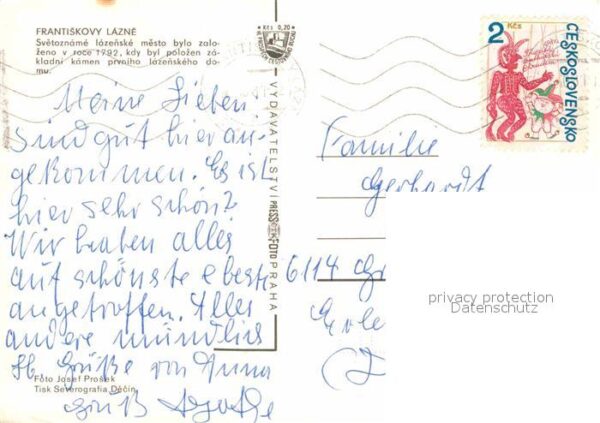 FRANTIŠKOVY LÁZNĚ
Světoznámé lázeňské město bylo zalo-
ženo v roce 1792, kdy byl položen zá-
kladní kámen prvního lázeňského do-
mu.
Meine Lieben!
Sind gut hier an-
gekommen. Es ist
hier sehr schön?
Wir haben alles
auf schönste e beste
angetroffen. Alles
andere mündlich
Hb. Grüße von Anna
Gruß
Foto Josef Prošek
Tisk Severografia Děčín
Kčs 0,20
VYDAVATELSTVÍ PRESSFOTO PRAHA
2 Kčs
ČESKOSLOVENSKO
Familie
Gerhardt
6114 Gr
Erle
privacy protection
Datenschutz